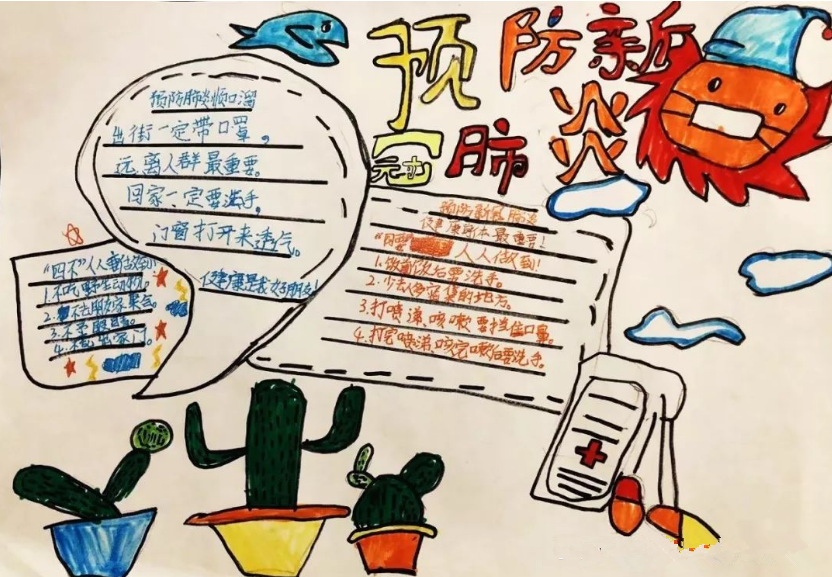 预防新
冠肺炎
预防肺炎顺口溜
出街一定带口罩，
远离人群最重要。
回家一定要洗手，
门窗打开来透气。
健康是我好朋友！
"四不"人人要做到！
1.不吃野生动物。
2.不去朋友家聚会。
4.不乱出家门。
预防新冠肺炎
健康身体最重要！
"四要 人人做到！
后要洗手。
2.少去人多密集的地方。
3.打喷涕、咳嗽要挡住口鼻。
4.打完喷涕、咳完嗽后要洗手。